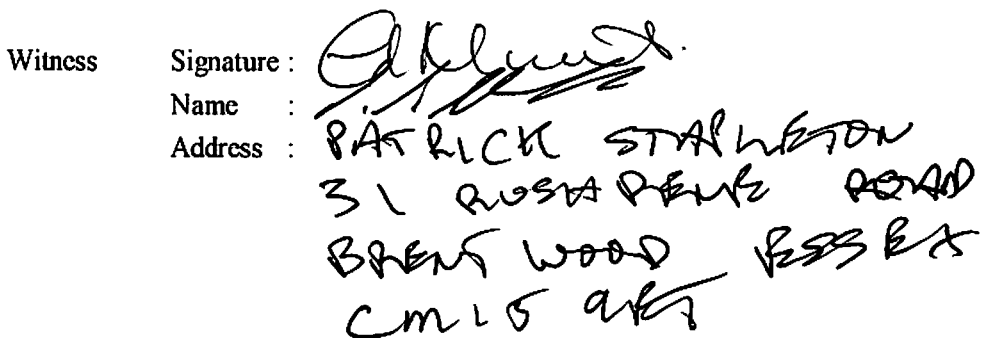 Witness Signature :
Name :
Address : PATRICK STAPLETON
31 ROAD
BRENTWOOD ESSEX
CM15 9ET